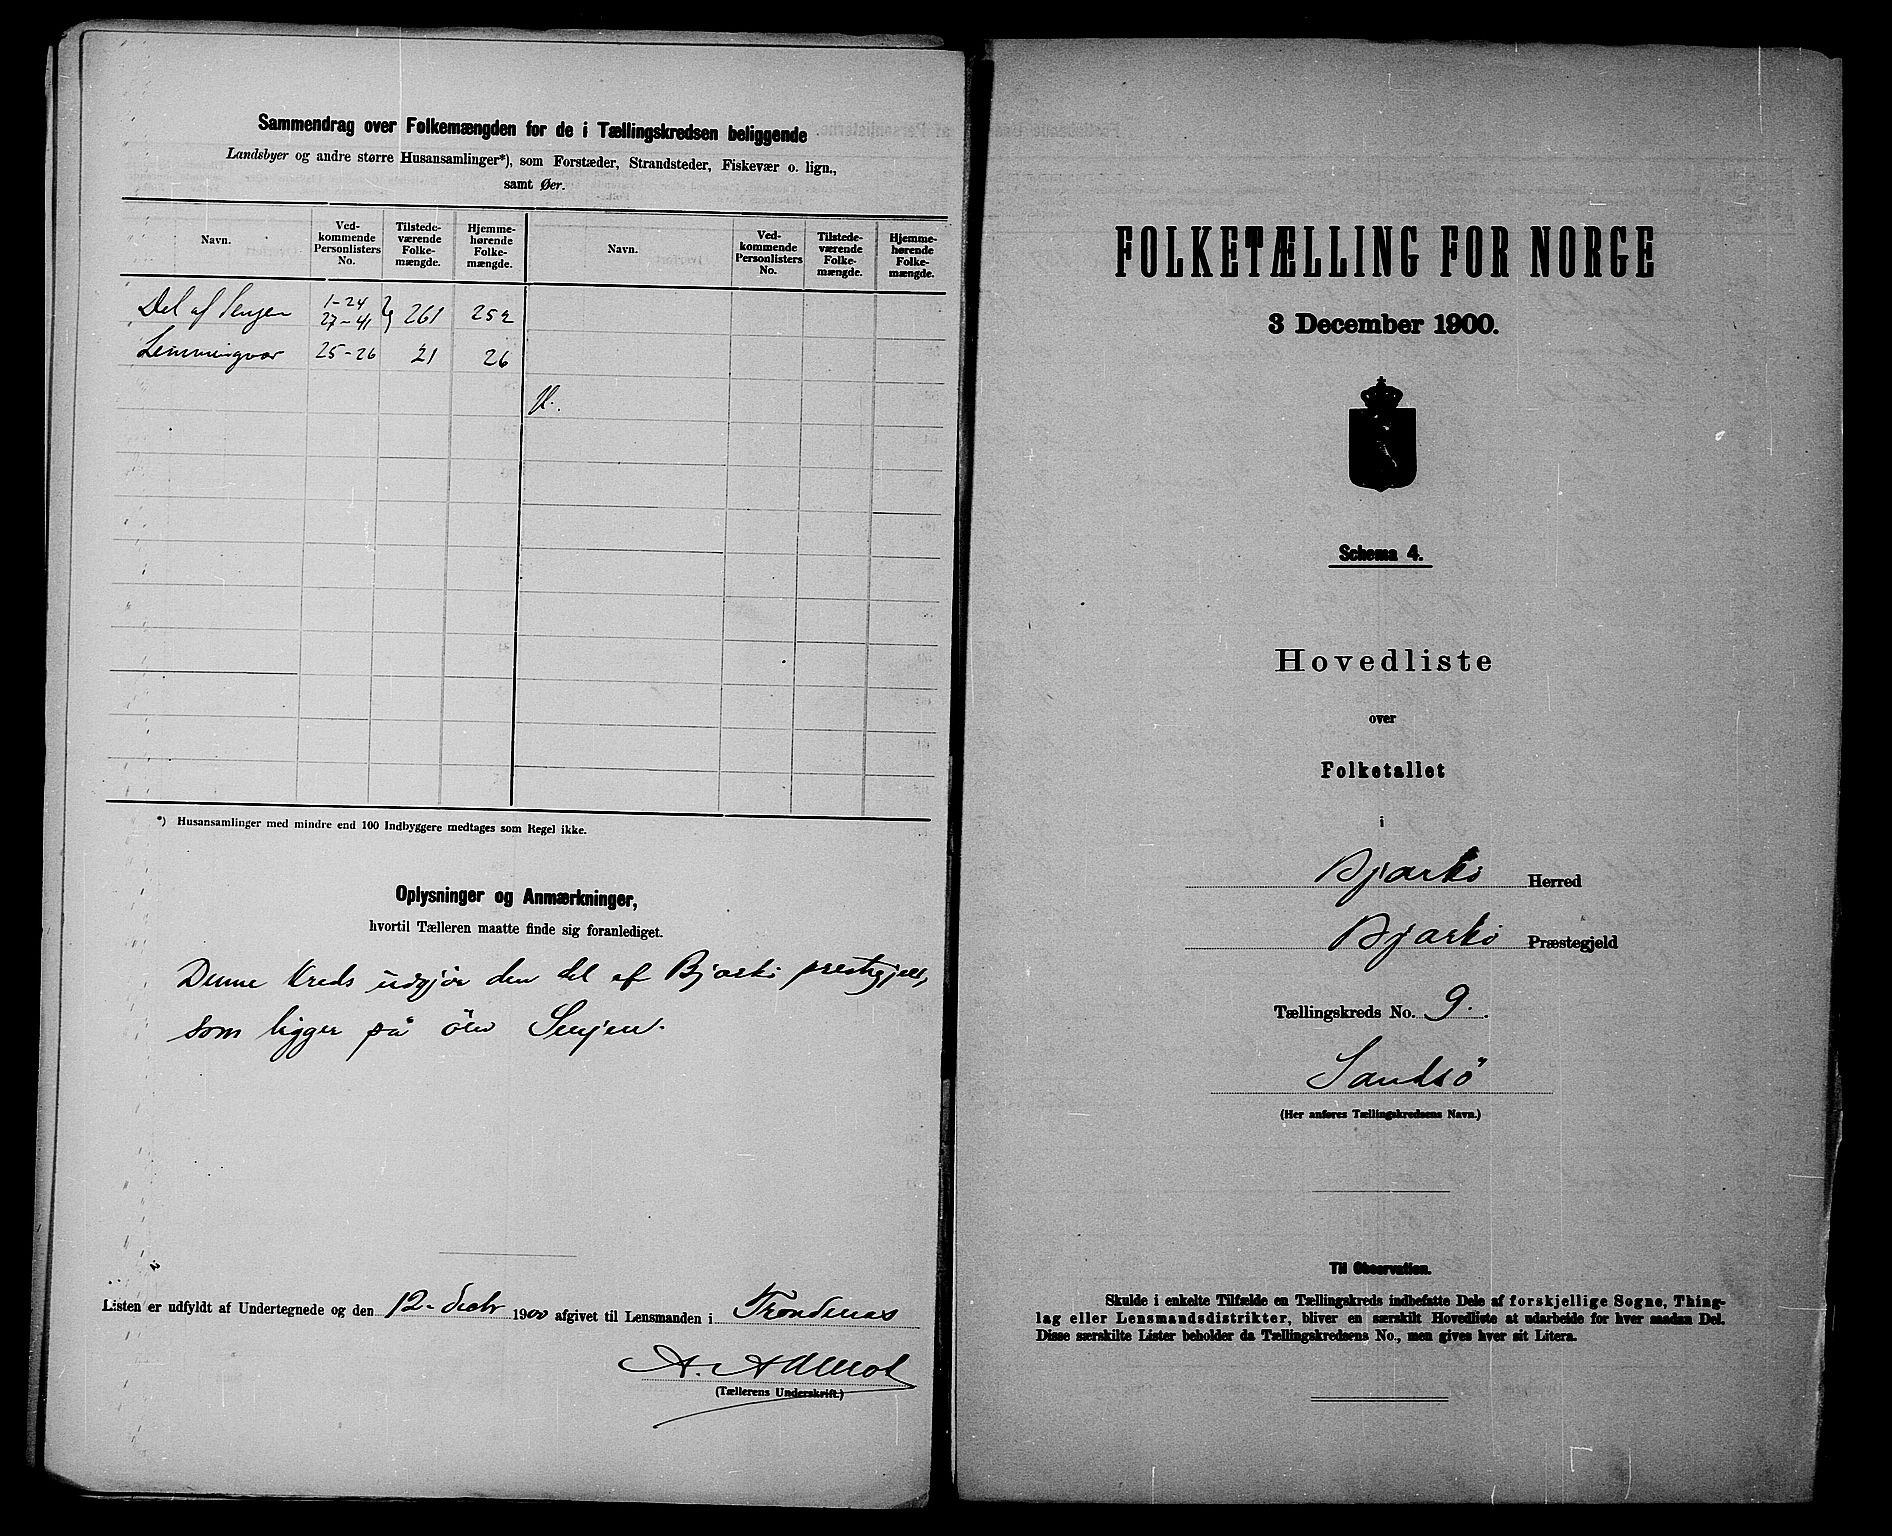 Sammendrag over Folkemængden for de i Tællingskredsen beliggende
Landsbyer og andre større Husansamlinger*), som Forstæder, Strandsteder, Fiskevær o. lign.,
samt Øer.
Navn. Ved-kommende Personlisters No. Tilstede-værende Folke-mængde. Hjemme-hørende Folke-mængde. Navn. Ved-kommende Personlisters No. Tilstede-værende Folke-mængde. Hjemme-hørende Folke-mængde.
Del af Senjen 1-24 27-41 } 261 252
Lemmingvær 25-26 21 26
*) Husansamlinger med mindre end 100 Indbyggere medtages som Regel ikke.
Oplysninger og Anmærkninger,
hvortil Tælleren maatte finde sig foranlediget.
Denne Kreds udgjør den del af Bjarkö prestegjeld,
som ligger på öen Senjen.
Listen er udfyldt af Undertegnede og den 12- Decbr 1900 afgivet til Lensmanden i Trondenas
(Tællerens Underskrift.)
FOLKETÆLLING FOR NORGE
3 December 1900.
Schema 4.
Hovedliste
over
Folketallet
i
Bjarkö Herred
Bjarkö Præstegjeld
Tællingskreds No. 9.
Sandsö
(Her anføres Tællingskredsens Navn.)
Til Observation.
Skulde i enkelte Tilfælde en Tællingskreds indbefatte Dele af forskjellige Sogne, Thing-
lag eller Lensmandsdistrikter, bliver en særskilt Hovedliste at udarbeide for hver saadan Del.
Disse særskilte Lister beholder da Tællingskredsens No., men gives hver sit Litera.